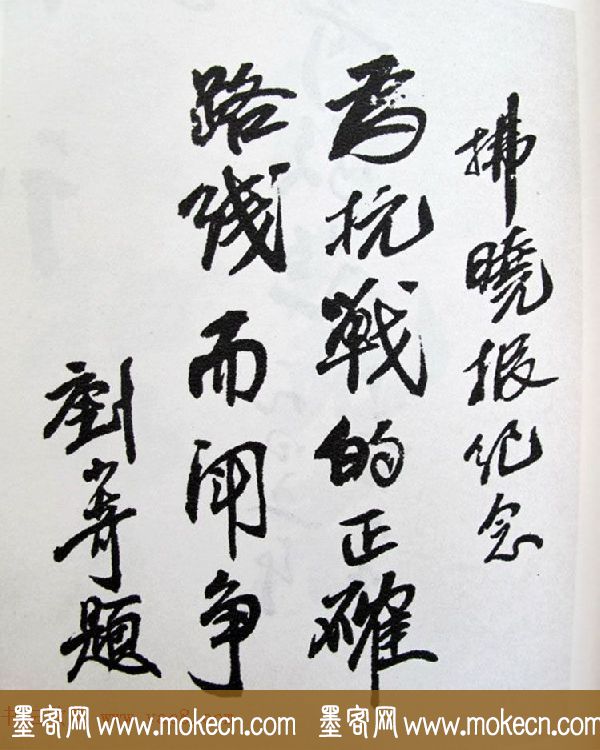 拂曉报纪念
為抗战的正確
路线而闘争
劉少奇題
墨客网 www.mokecn.com 墨客网 www.mokecn.com